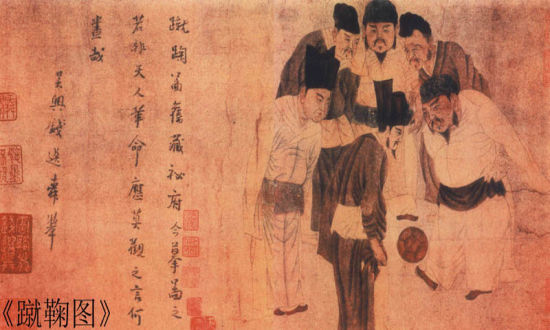 蹴鞠啚舊藏祕府今摹啚之
若非天人革命應莫觀之言何
畫哉
吴興錢選舜舉
《蹴鞠图》